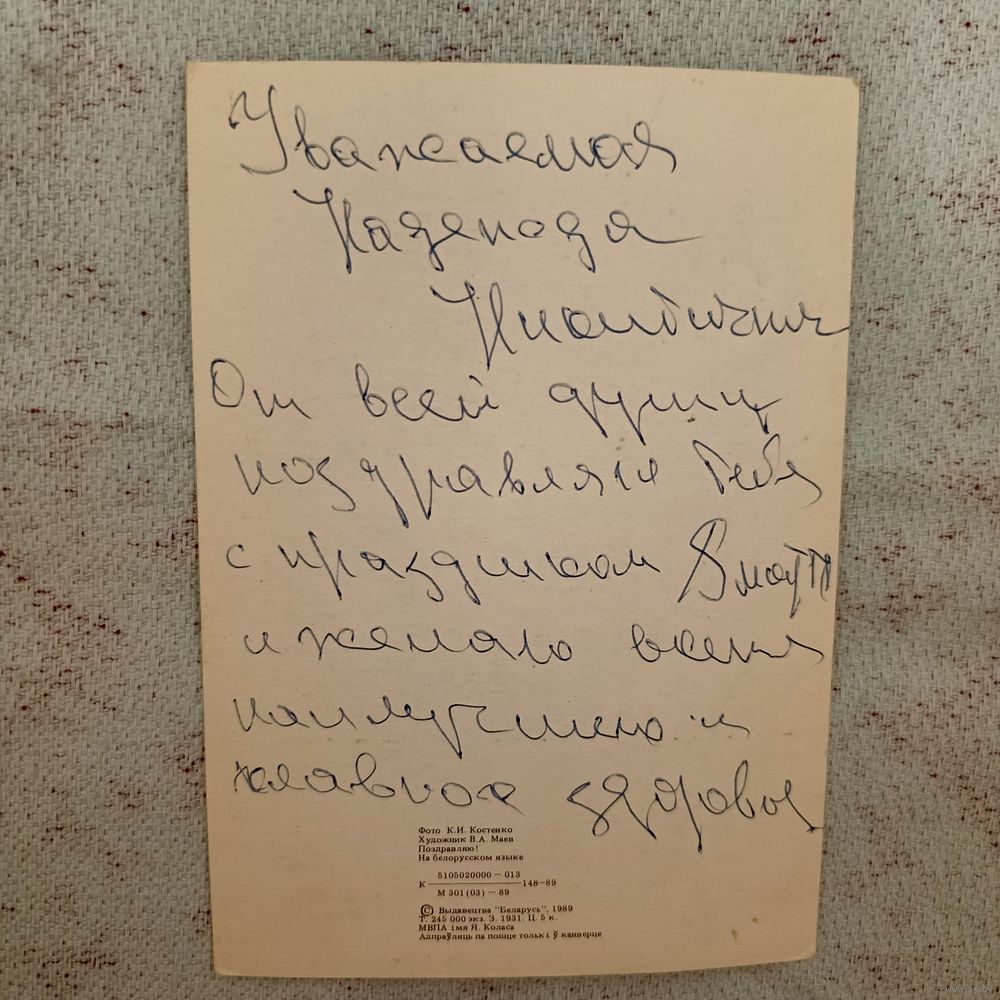 Уважаемая
Надежда
От всей души
поздравляю тебя
с праздником 8 марта
и желаю всего
наилучшего и
главное здоровья
Фото К.И. Костенко
Художник В.А. Маев
Поздравляю!
На белорусском языке
К 5105020000 — 013 148—89
М 301 (03) — 89
© Выдавецтва "Беларусь", 1989
Т. 245 000 экз. З. 1931. Ц. 5 к.
МВПА імя Я. Коласа
Адпраўляць па пошце толькі ў канверце